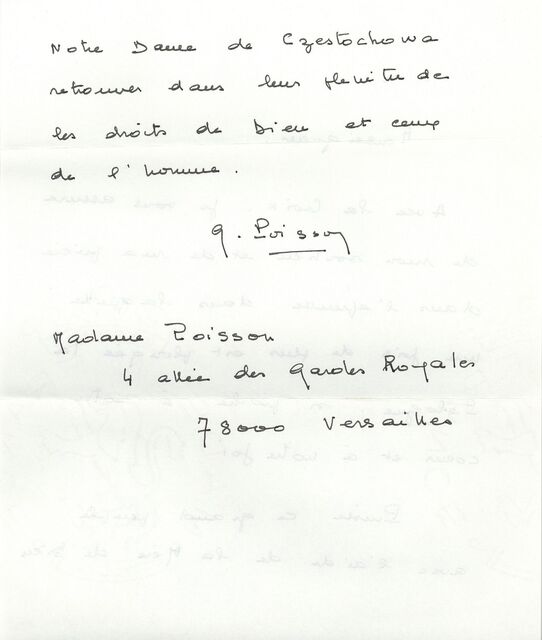 Notre Dame de Częstochowa
retrouver dans leur plénitude
les droits de Dieu et ceux
de l'homme.
G. Poisson
Madame Poisson
4 allée des Gardes Royales
78000 Versailles